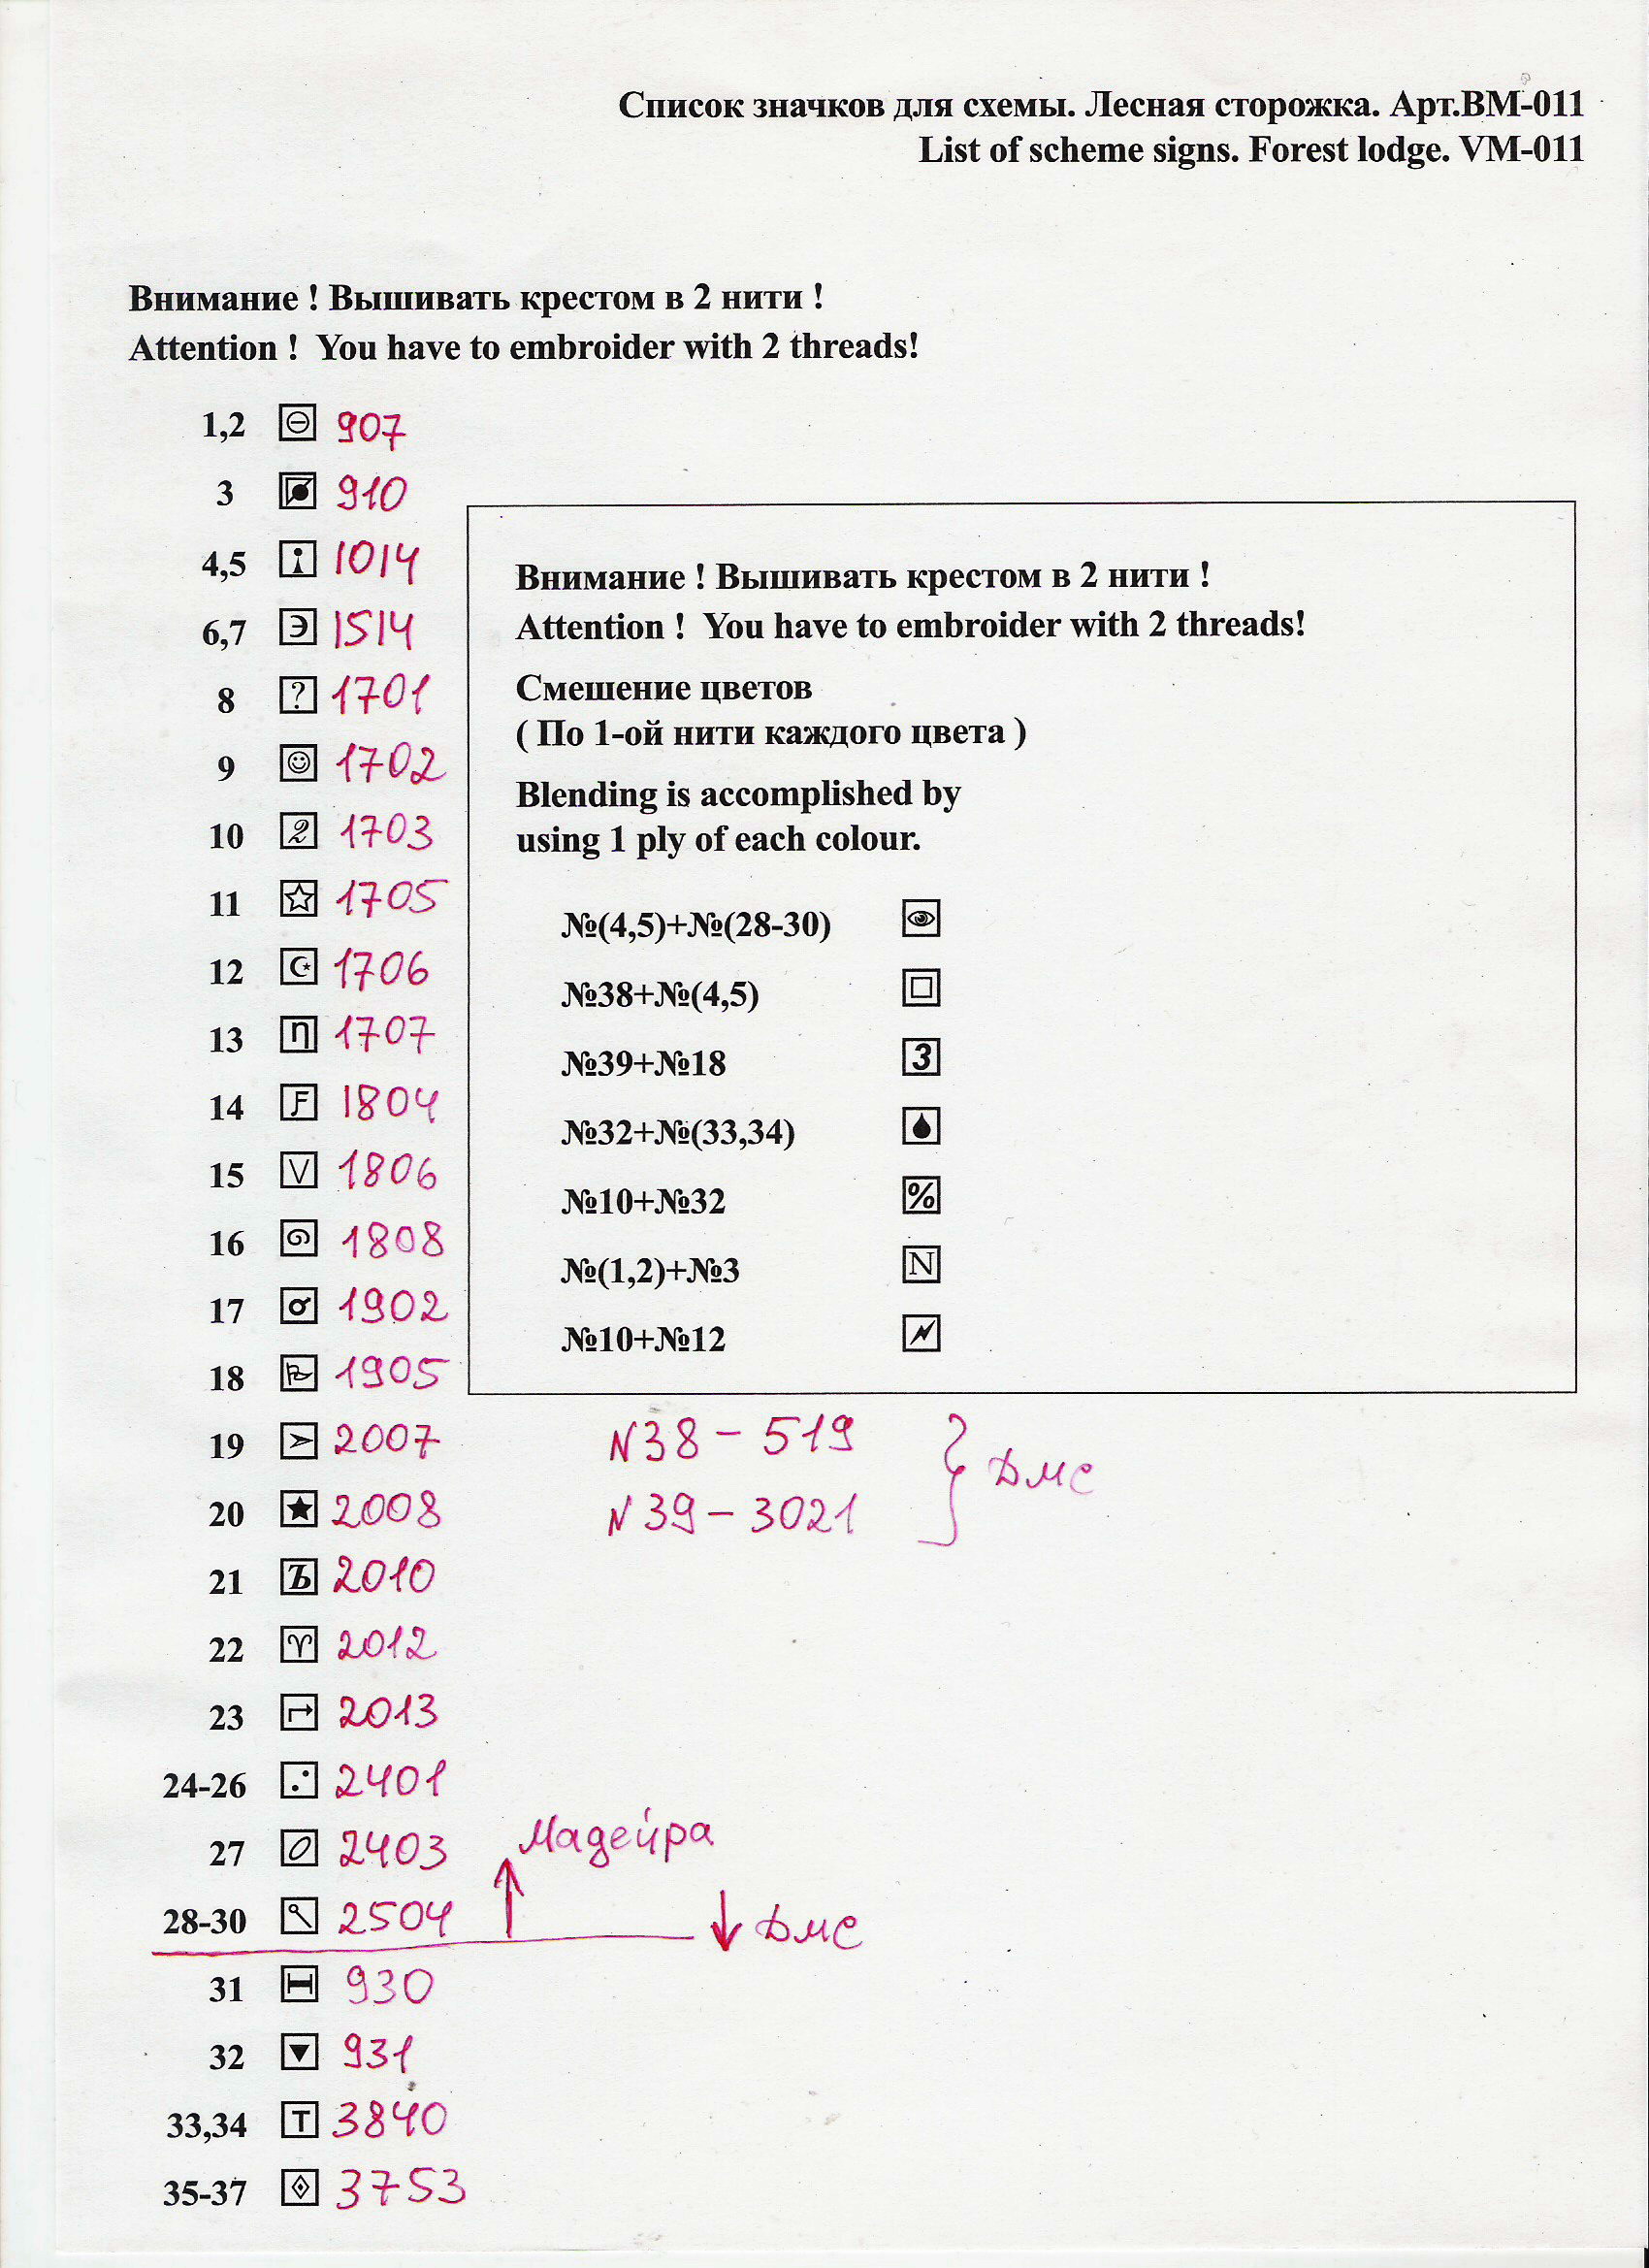 Список значков для схемы. Лесная сторожка. Арт.ВМ-011
List of scheme signs. Forest lodge. VM-011
Внимание ! Вышивать крестом в 2 нити !
Attention ! You have to embroider with 2 threads!
1,2 907
3 910
4,5 1014
6,7 Э 1514
8 ? 1701
9 ☺ 1702
10 2 1703
11 ☆ 1705
12 ☪ 1706
13 η 1707
14 F 1804
15 V 1806
16 1808
17 1902
18 1905
19 ➢ 2007
20 ★ 2008
21 Ъ 2010
22 ♈ 2012
23 2013
24-26 2401
27 2403
28-30 2504
31 930
32 ▼ 931
33,34 T 3840
35-37 3753
Внимание ! Вышивать крестом в 2 нити !
Attention ! You have to embroider with 2 threads!
Смешение цветов
( По 1-ой нити каждого цвета )
Blending is accomplished by
using 1 ply of each colour.
№(4,5)+№(28-30)
№38+№(4,5)
№39+№18 3
№32+№(33,34)
№10+№32 %
№(1,2)+№3 N
№10+№12
N38 - 519
N39 - 3021
ДМС
Мадейра
ДМС